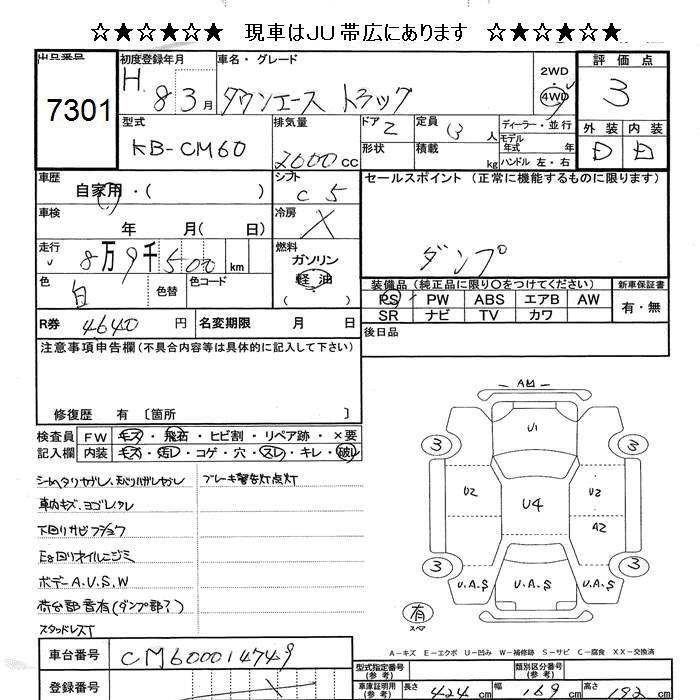 ☆★☆★☆★ 現車はJU帯広にあります ☆★☆★☆★
出品番号 7301
初度登録年月 H 8 3月
車名・グレード タウンエース トラック
2WD 4WD
評価点 3
外装 内装
D D
型式 KB-CM60
排気量 2000cc
ドア 2 定員 3人
形状 積載 kg
ディーラー・並行
モデル年式 年式
ハンドル 左・右
車歴 自家用・( )
シフト C5
セールスポイント (正常に機能するものに限ります)
ダンプ
車検 年 月( 日)
冷房 ×
走行 8万9千500km
燃料 ガソリン 軽油 ( )
色 白 色替 色コード
装備品 (純正品に限り○をつけてください)
PS PW ABS エアB AW
SR ナビ TV カワ
新車保証書 有・無
R券 4640円 名変期限 月 日
後日品
注意事項申告欄(不具合内容等は具体的に記入して下さい)
修復歴 有 〔箇所 〕
検査員記入欄
FW キズ・飛石・ヒビ割・リペア跡・×要
内装 キズ・汚レ・コゲ・穴・スレ・キレ・破レ
ブレーキ警告灯点灯
車内キズ、ヨゴレ、クレ
下回りサビフショク
Eg回りオイルニジミ
ボデーA.U.S.W
荷台部音有(ダンプ部?)
スタッドレスT
A U
U1
3 3
U2 U4 U2
A2
3 3
U.A.S U.A.S U.A.S
有 スペア
A-キズ E-エクボ U-凹み W-補修跡 S-サビ C-腐食 XX-交換済
車台番号 CM600014749
登録番号
型式指定番号(参考) 類別区分番号(参考)
車庫証明用(参考) 長さ 424cm 幅 169cm 高さ 192cm